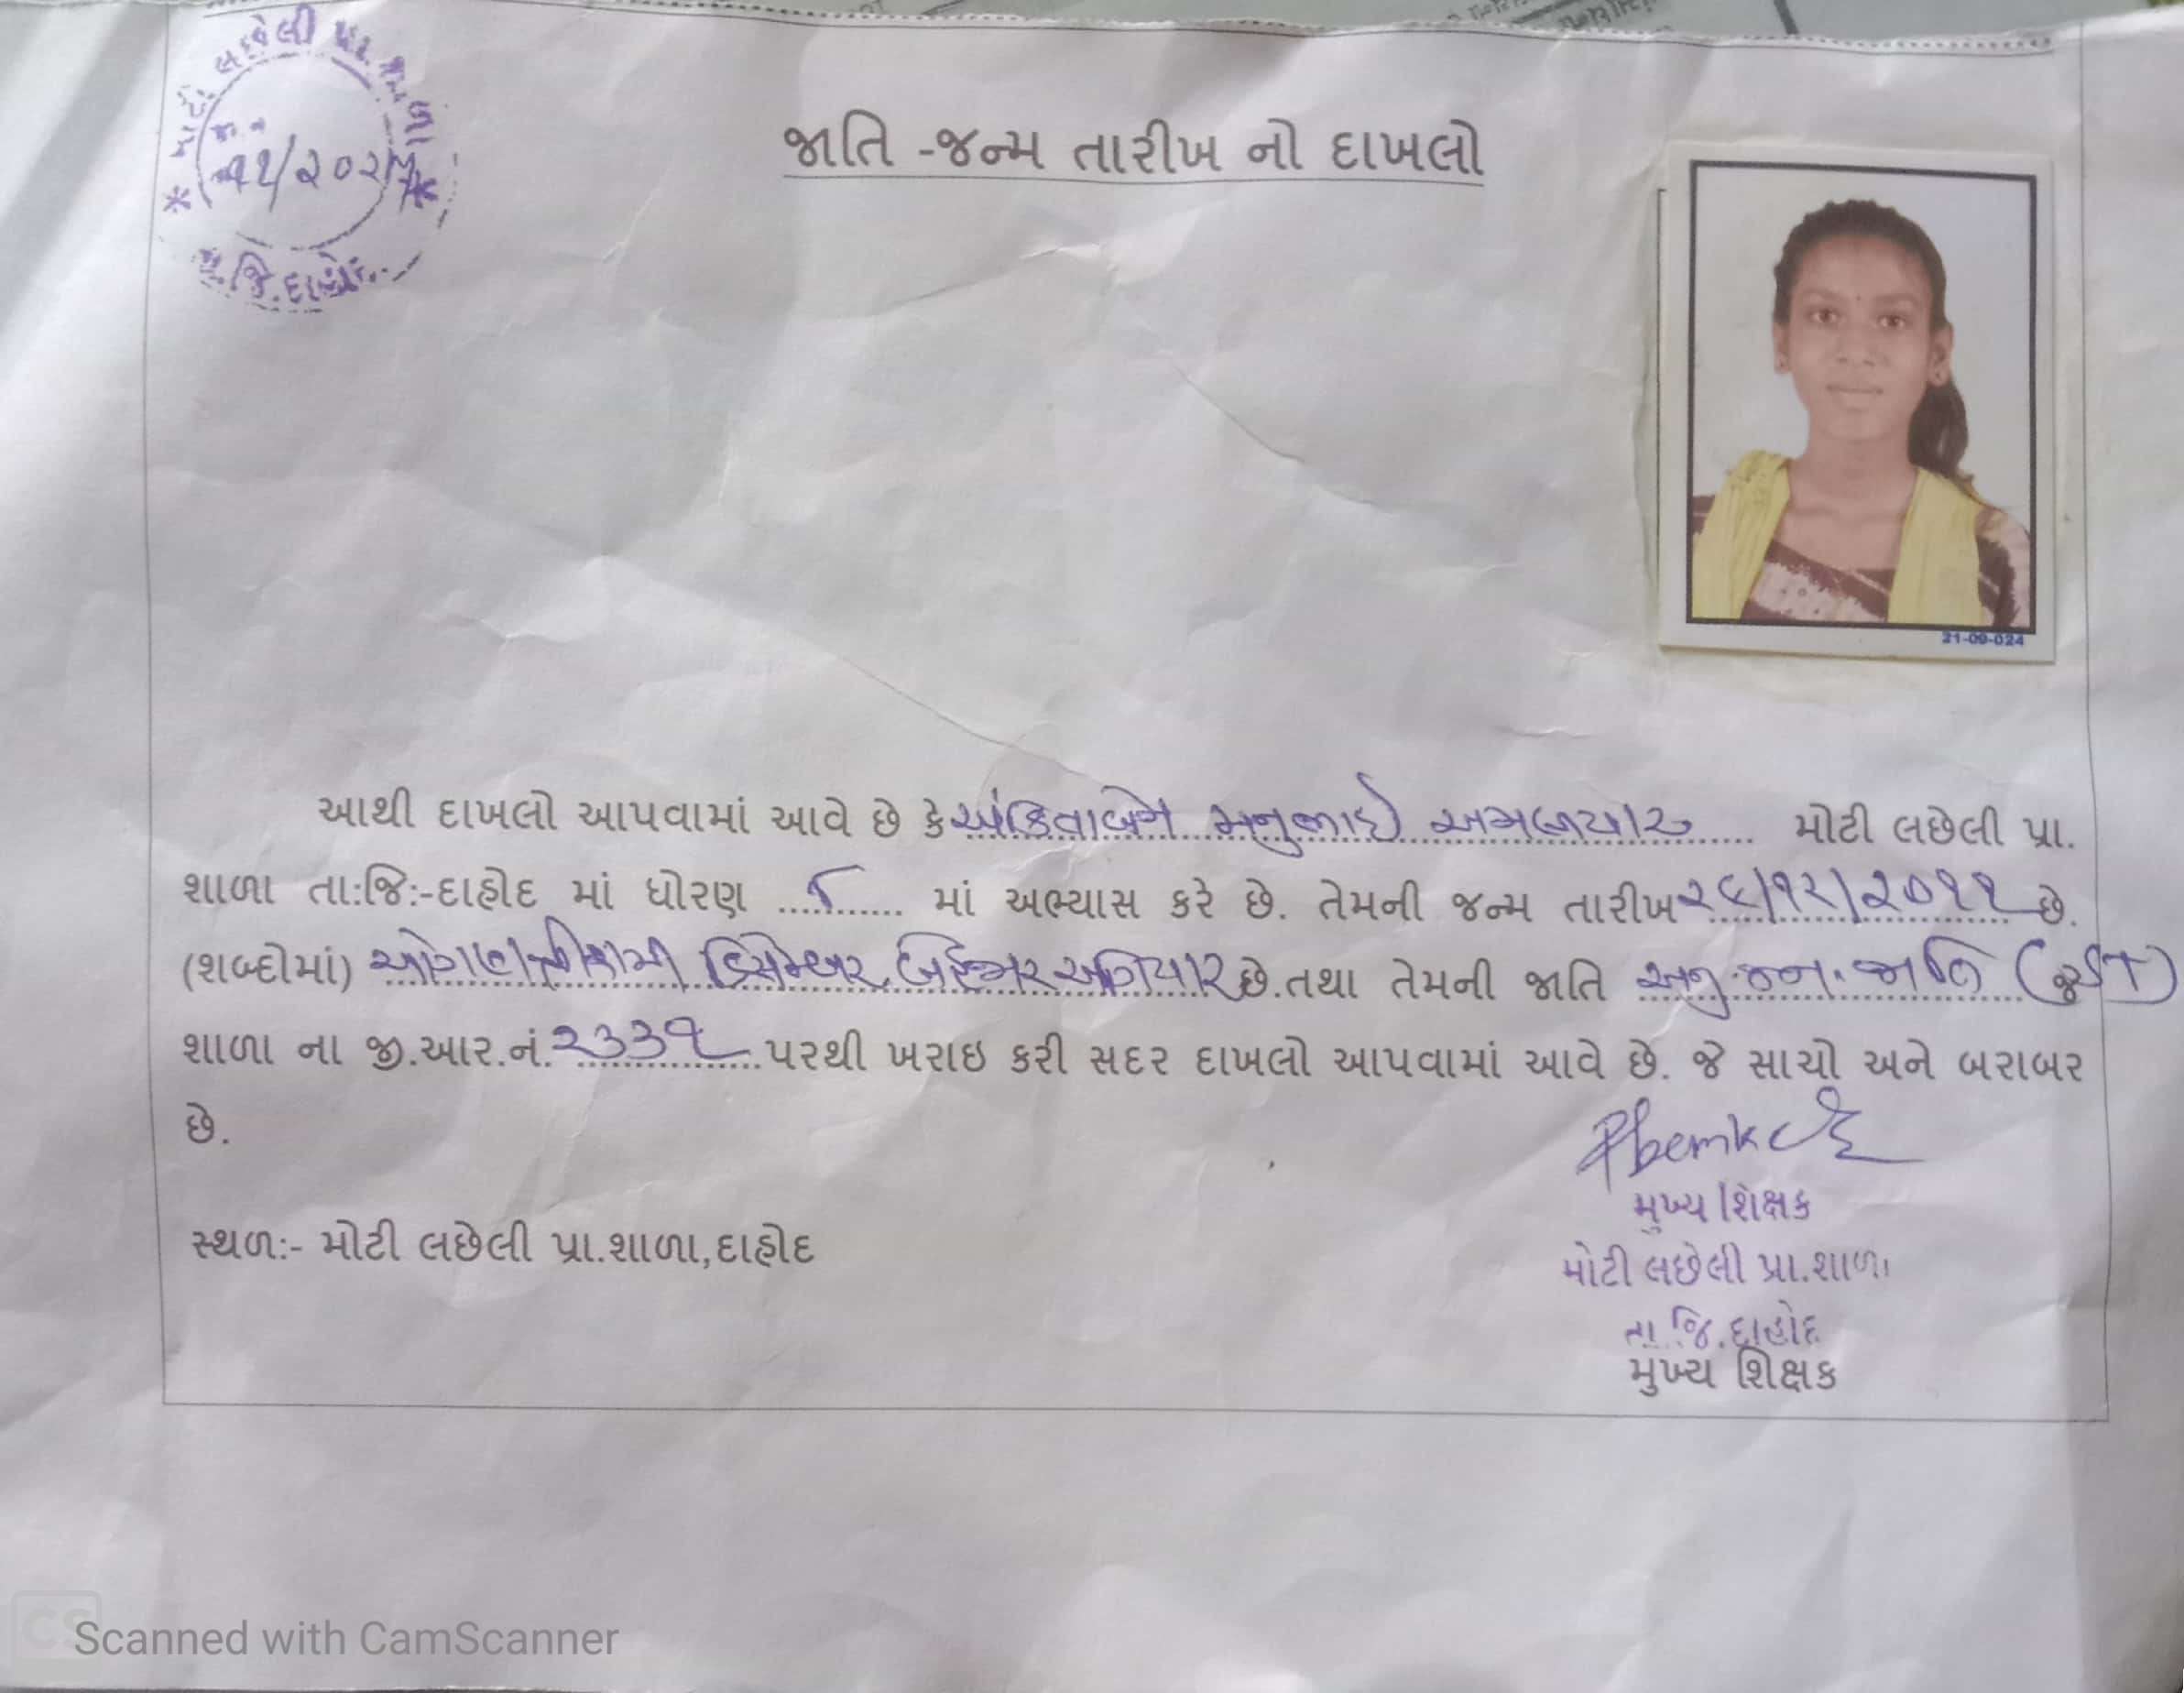 મોટી લછેલી પ્રા. શાળા
જિ.દાહોદ
જાતિ -જન્મ તારીખ નો દાખલો
21-09-024
આથી દાખલો આપવામાં આવે છે કે અંકિતાબેન મનુભાઈ અમલીયાર મોટી લછેલી પ્રા.
શાળા તા:જિ:-દાહોદ માં ધોરણ ૮ માં અભ્યાસ કરે છે. તેમની જન્મ તારીખ ૨૯/૧૨/૨૦૧૧ છે.
(શબ્દોમાં) ડિસેમ્બર બેહજાર અગિયાર છે.તથા તેમની જાતિ અનુ.જન.જાતિ (ST)
શાળા ના જી.આર.નં. ૨૩૩૧ પરથી ખરાઇ કરી સદર દાખલો આપવામાં આવે છે. જે સાચો અને બરાબર
છે.
મુખ્ય શિક્ષક
સ્થળ:- મોટી લછેલી પ્રા.શાળા,દાહોદ
મોટી લછેલી પ્રા.શાળા
તા.જિ.દાહોદ
મુખ્ય શિક્ષક
CS Scanned with CamScanner